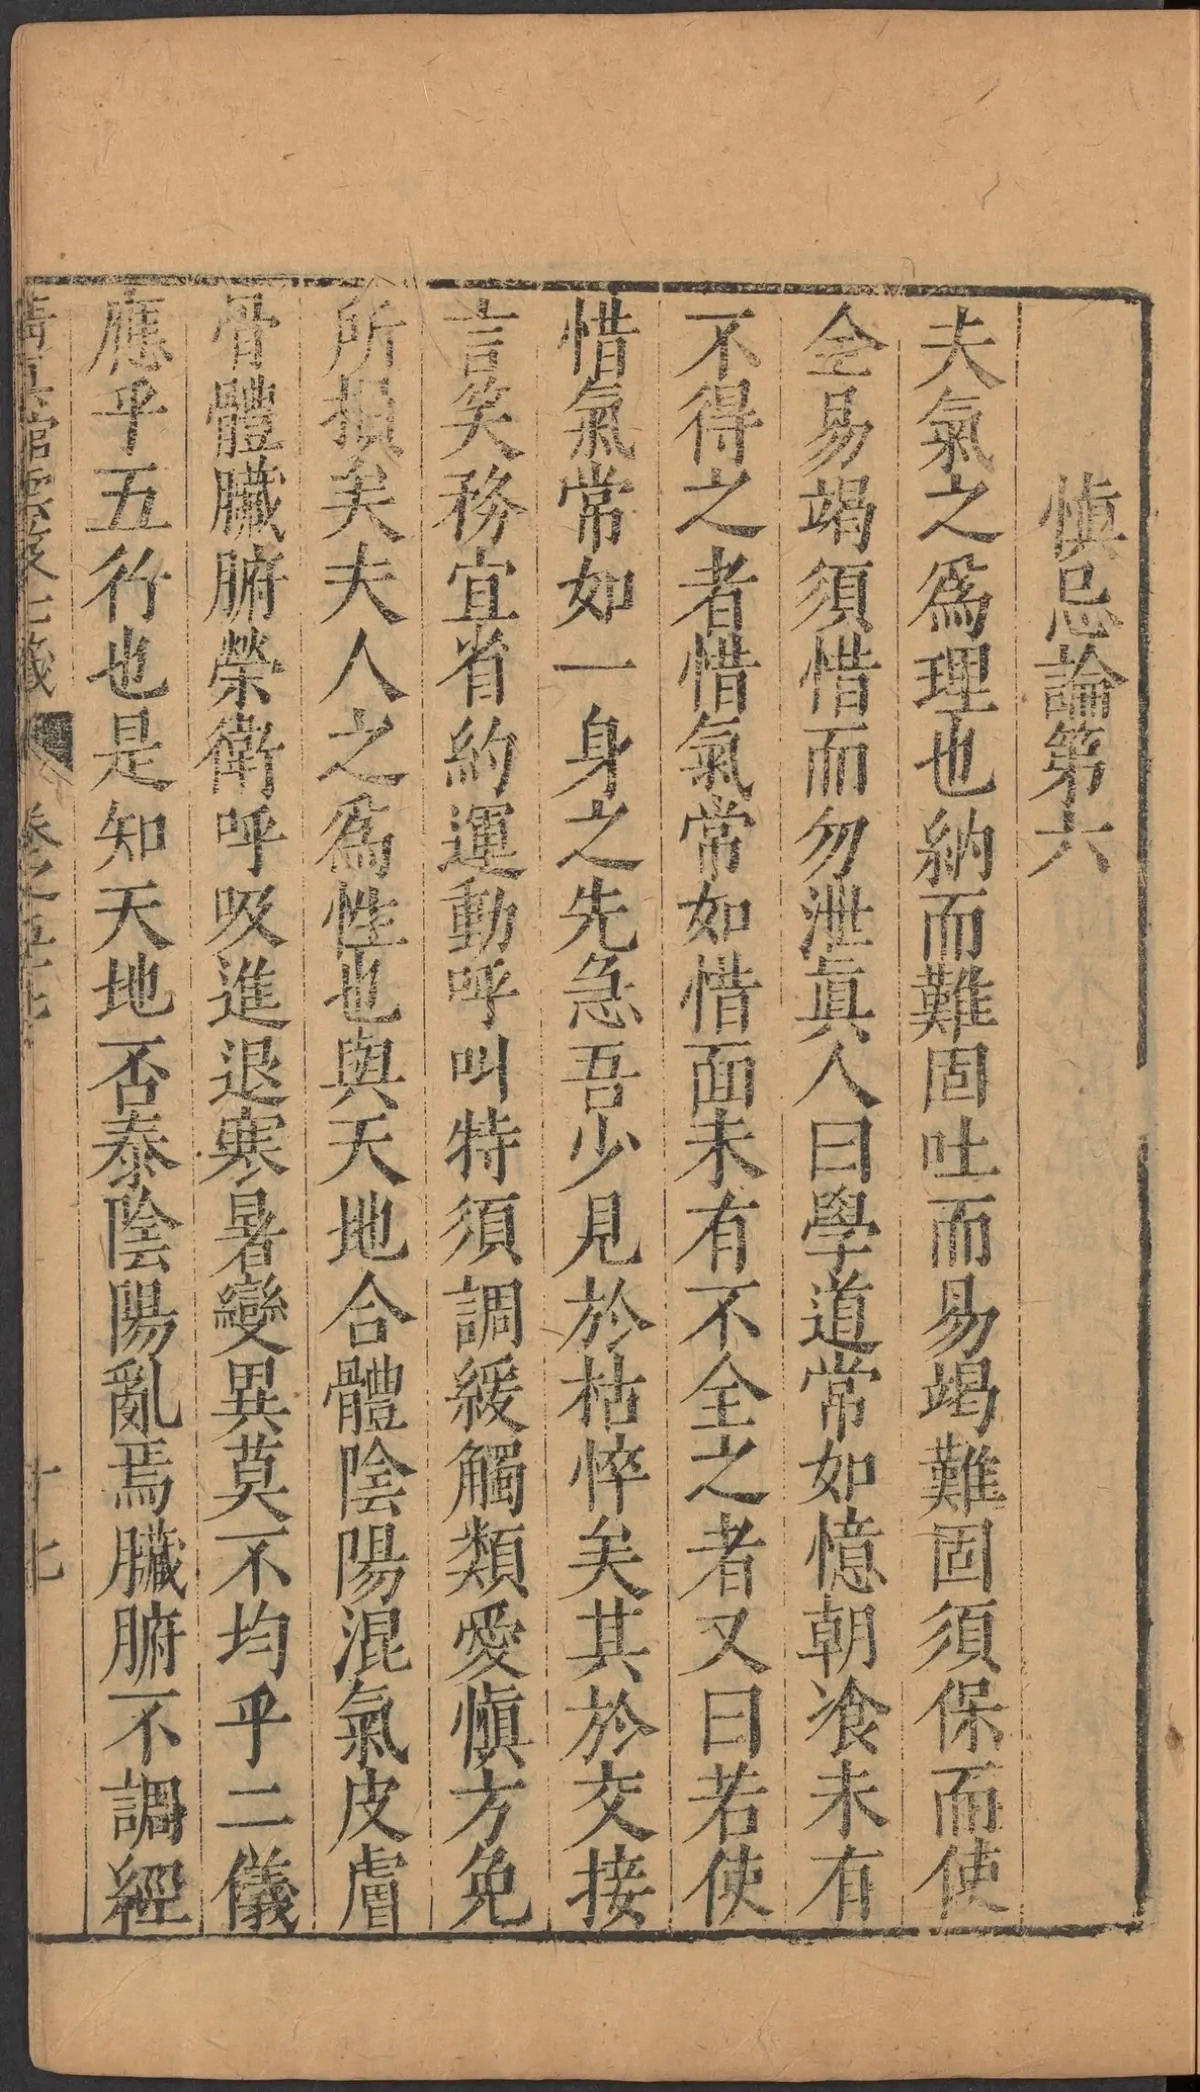 慎忌論第六
夫氣之爲理也納而難固吐而易竭難固須保而使
全易竭須惜而勿泄眞人曰學道常如憶朝飡未有
不得之者惜氣常如惜面未有不全之者又曰若使
惜氣常如一身之先急吾少見於枯悴矣其於交接
言笑務宜省約運動呼叫特須調緩觸類愛慎方免
所損矣夫人之爲性也與天地合體陰陽混氣皮膚
骨體臟腑榮衛呼吸進退寒暑變異莫不均乎二儀
應乎五行也是知天地否泰陰陽亂焉臟腑不調經
雲笈七籤 卷之五十七